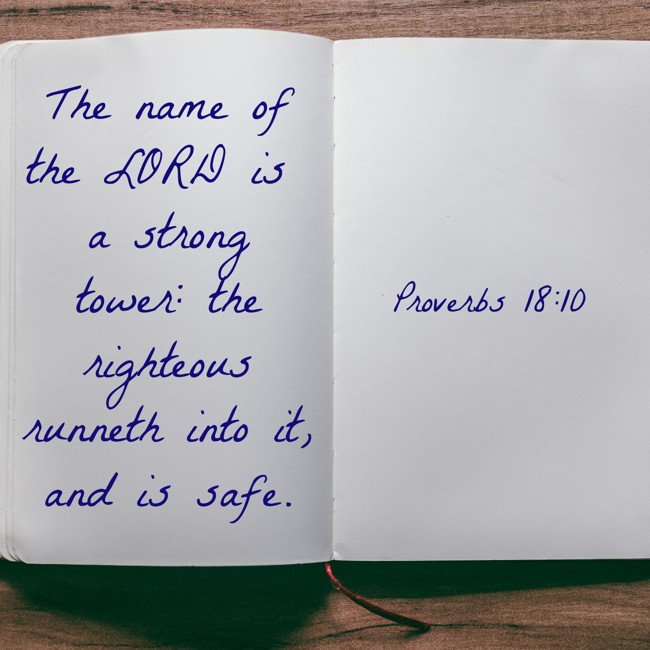 The name of
the LORD is
a strong
tower: the
righteous
runneth into it,
and is safe.
Proverbs 18:10